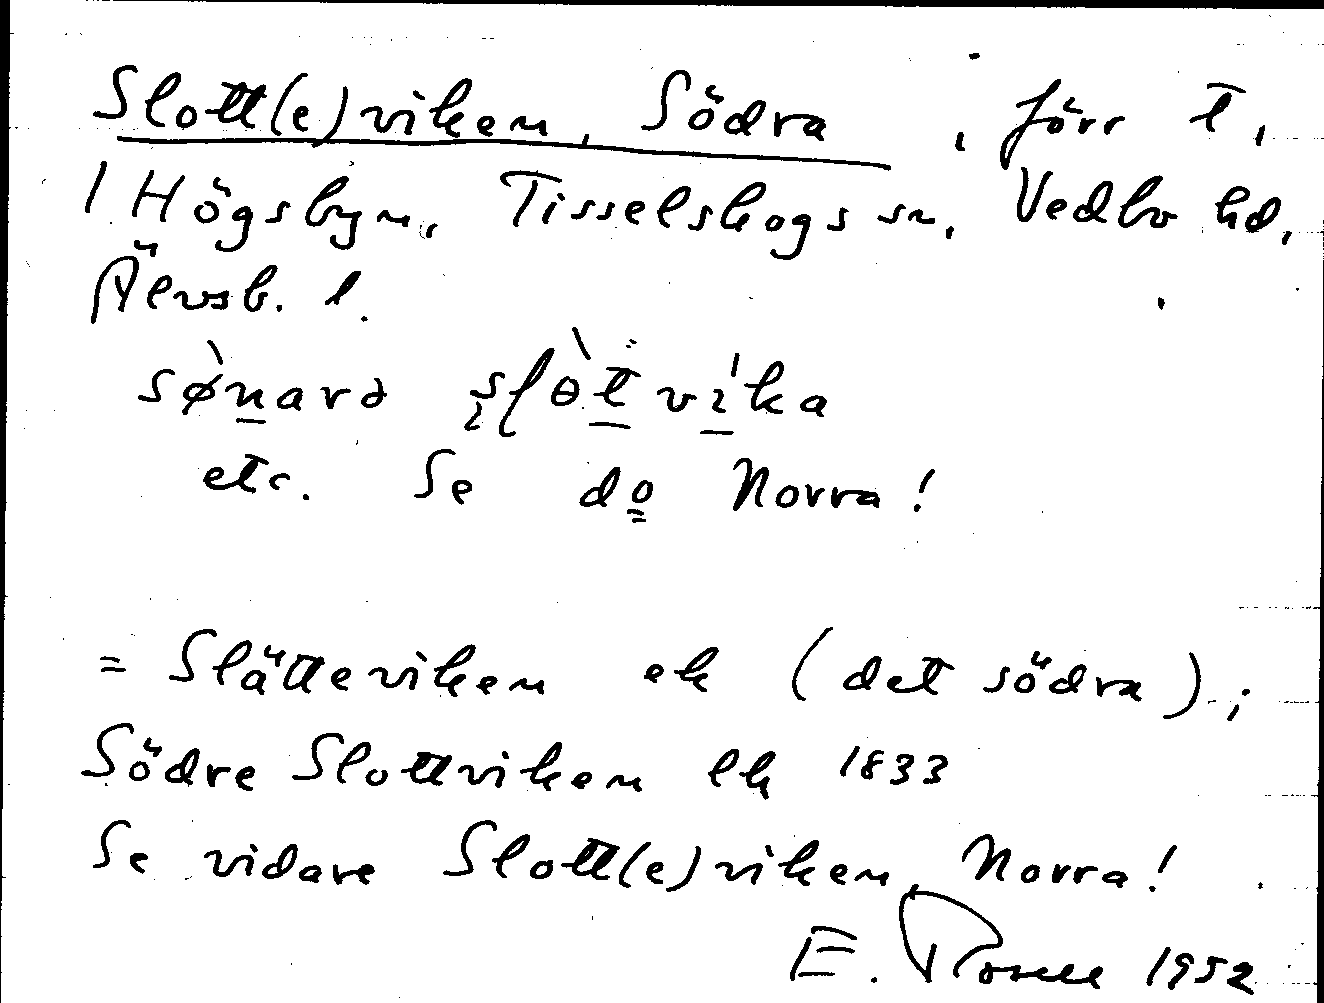 Slott(e)viken, Södra, förr t.
/ Högsbyn, Tisselskogs sn, Vedbo hd,
Älvsb. l.
etc. Se do Norra!
= Slätteviken ek (det södra);
Södre Slottviken lk 1833
Se vidare Slott(e)viken, Norra!
E. Rosell 1952